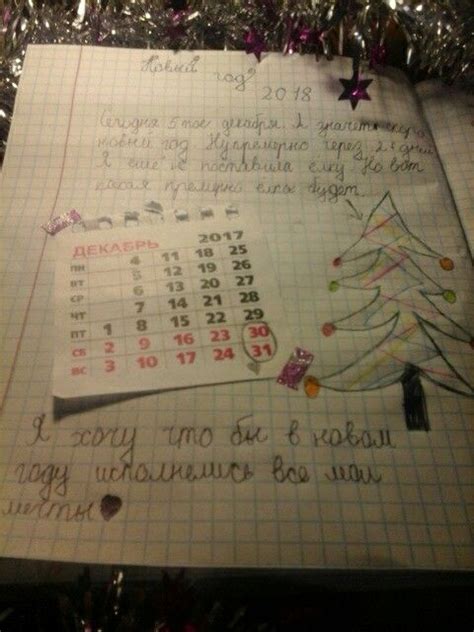 Новый
год
2018
Сегодня 5 тое декабря. А значит скоро
новый год. Нупремерно через 24 дней
Я ещё не поставила ёлку. Но вот
какая премерно елка будет.
ДЕКАБРЬ 2017
ПН 4 11 18 25
ВТ 5 12 19 26
СР 6 13 20 27
ЧТ 7 14 21 28
ПТ 1 8 15 22 29
СБ 2 9 16 23 30
ВС 3 10 17 24 31
Я хочу что бы в новом
году исполнемись все мои
мечты